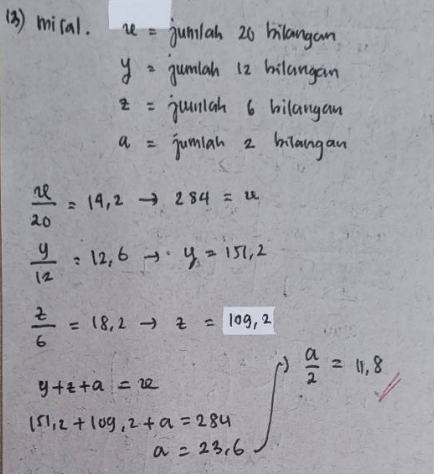 (3) misal. x = jumlah 20 bilangan
y = jumlah 12 bilangan
z = jumlah 6 bilangan
a = jumlah 2 bilangan
x/20 = 14,2 → 284 = x
y/12 = 12,6 → y = 151,2
z/6 = 18,2 → z = 109,2
y+z+a = x
151,2 + 109,2 + a = 284
a = 23,6
→ a/2 = 11,8